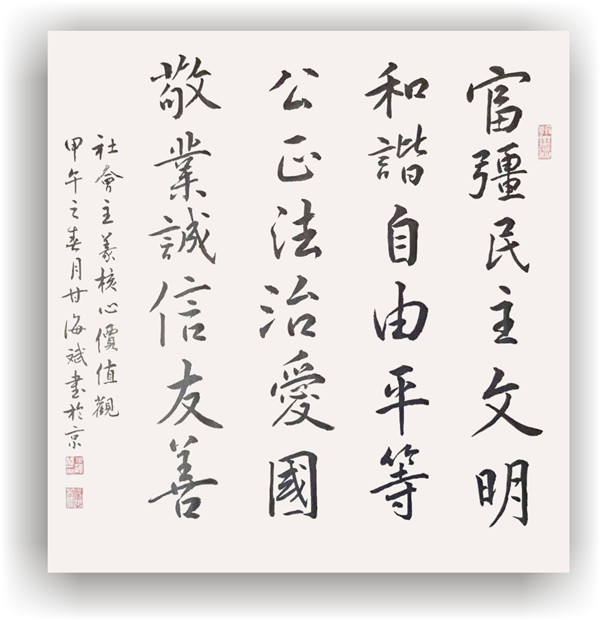 富彊民主文明
和諧自由平等
公正法治愛國
敬業誠信友善
社會主義核心價值觀
甲午之春月甘海斌書於京